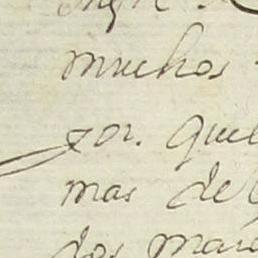 muchos
zon. que
mas de
dos mara